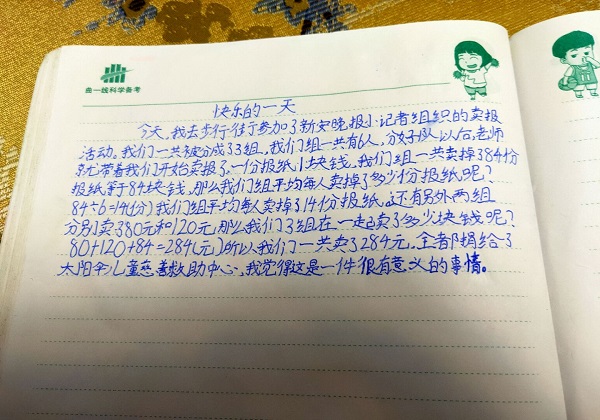 曲一线科学备考
快乐的一天
今天，我去步行街参加了新安晚报小记者组织的卖报
活动。我们一共被分成33组，我们组一共有6人，分好队以后，老师
就带着我们开始卖报了。一份报纸1块钱，我们组一共卖掉了84份
报纸等于84块钱，那么我们组平均每人卖掉了多少份报纸呢？
84÷6=14(份)我们组平均每人卖掉了14份报纸，还有另外两组
分别卖了80元和120元，那么我们3组在一起卖了多少块钱呢？
80+120+84=284(元)所以我们一共卖了284元，全部捐给了
太阳伞儿童慈善救助中心，我觉得这是一件很有意义的事情。